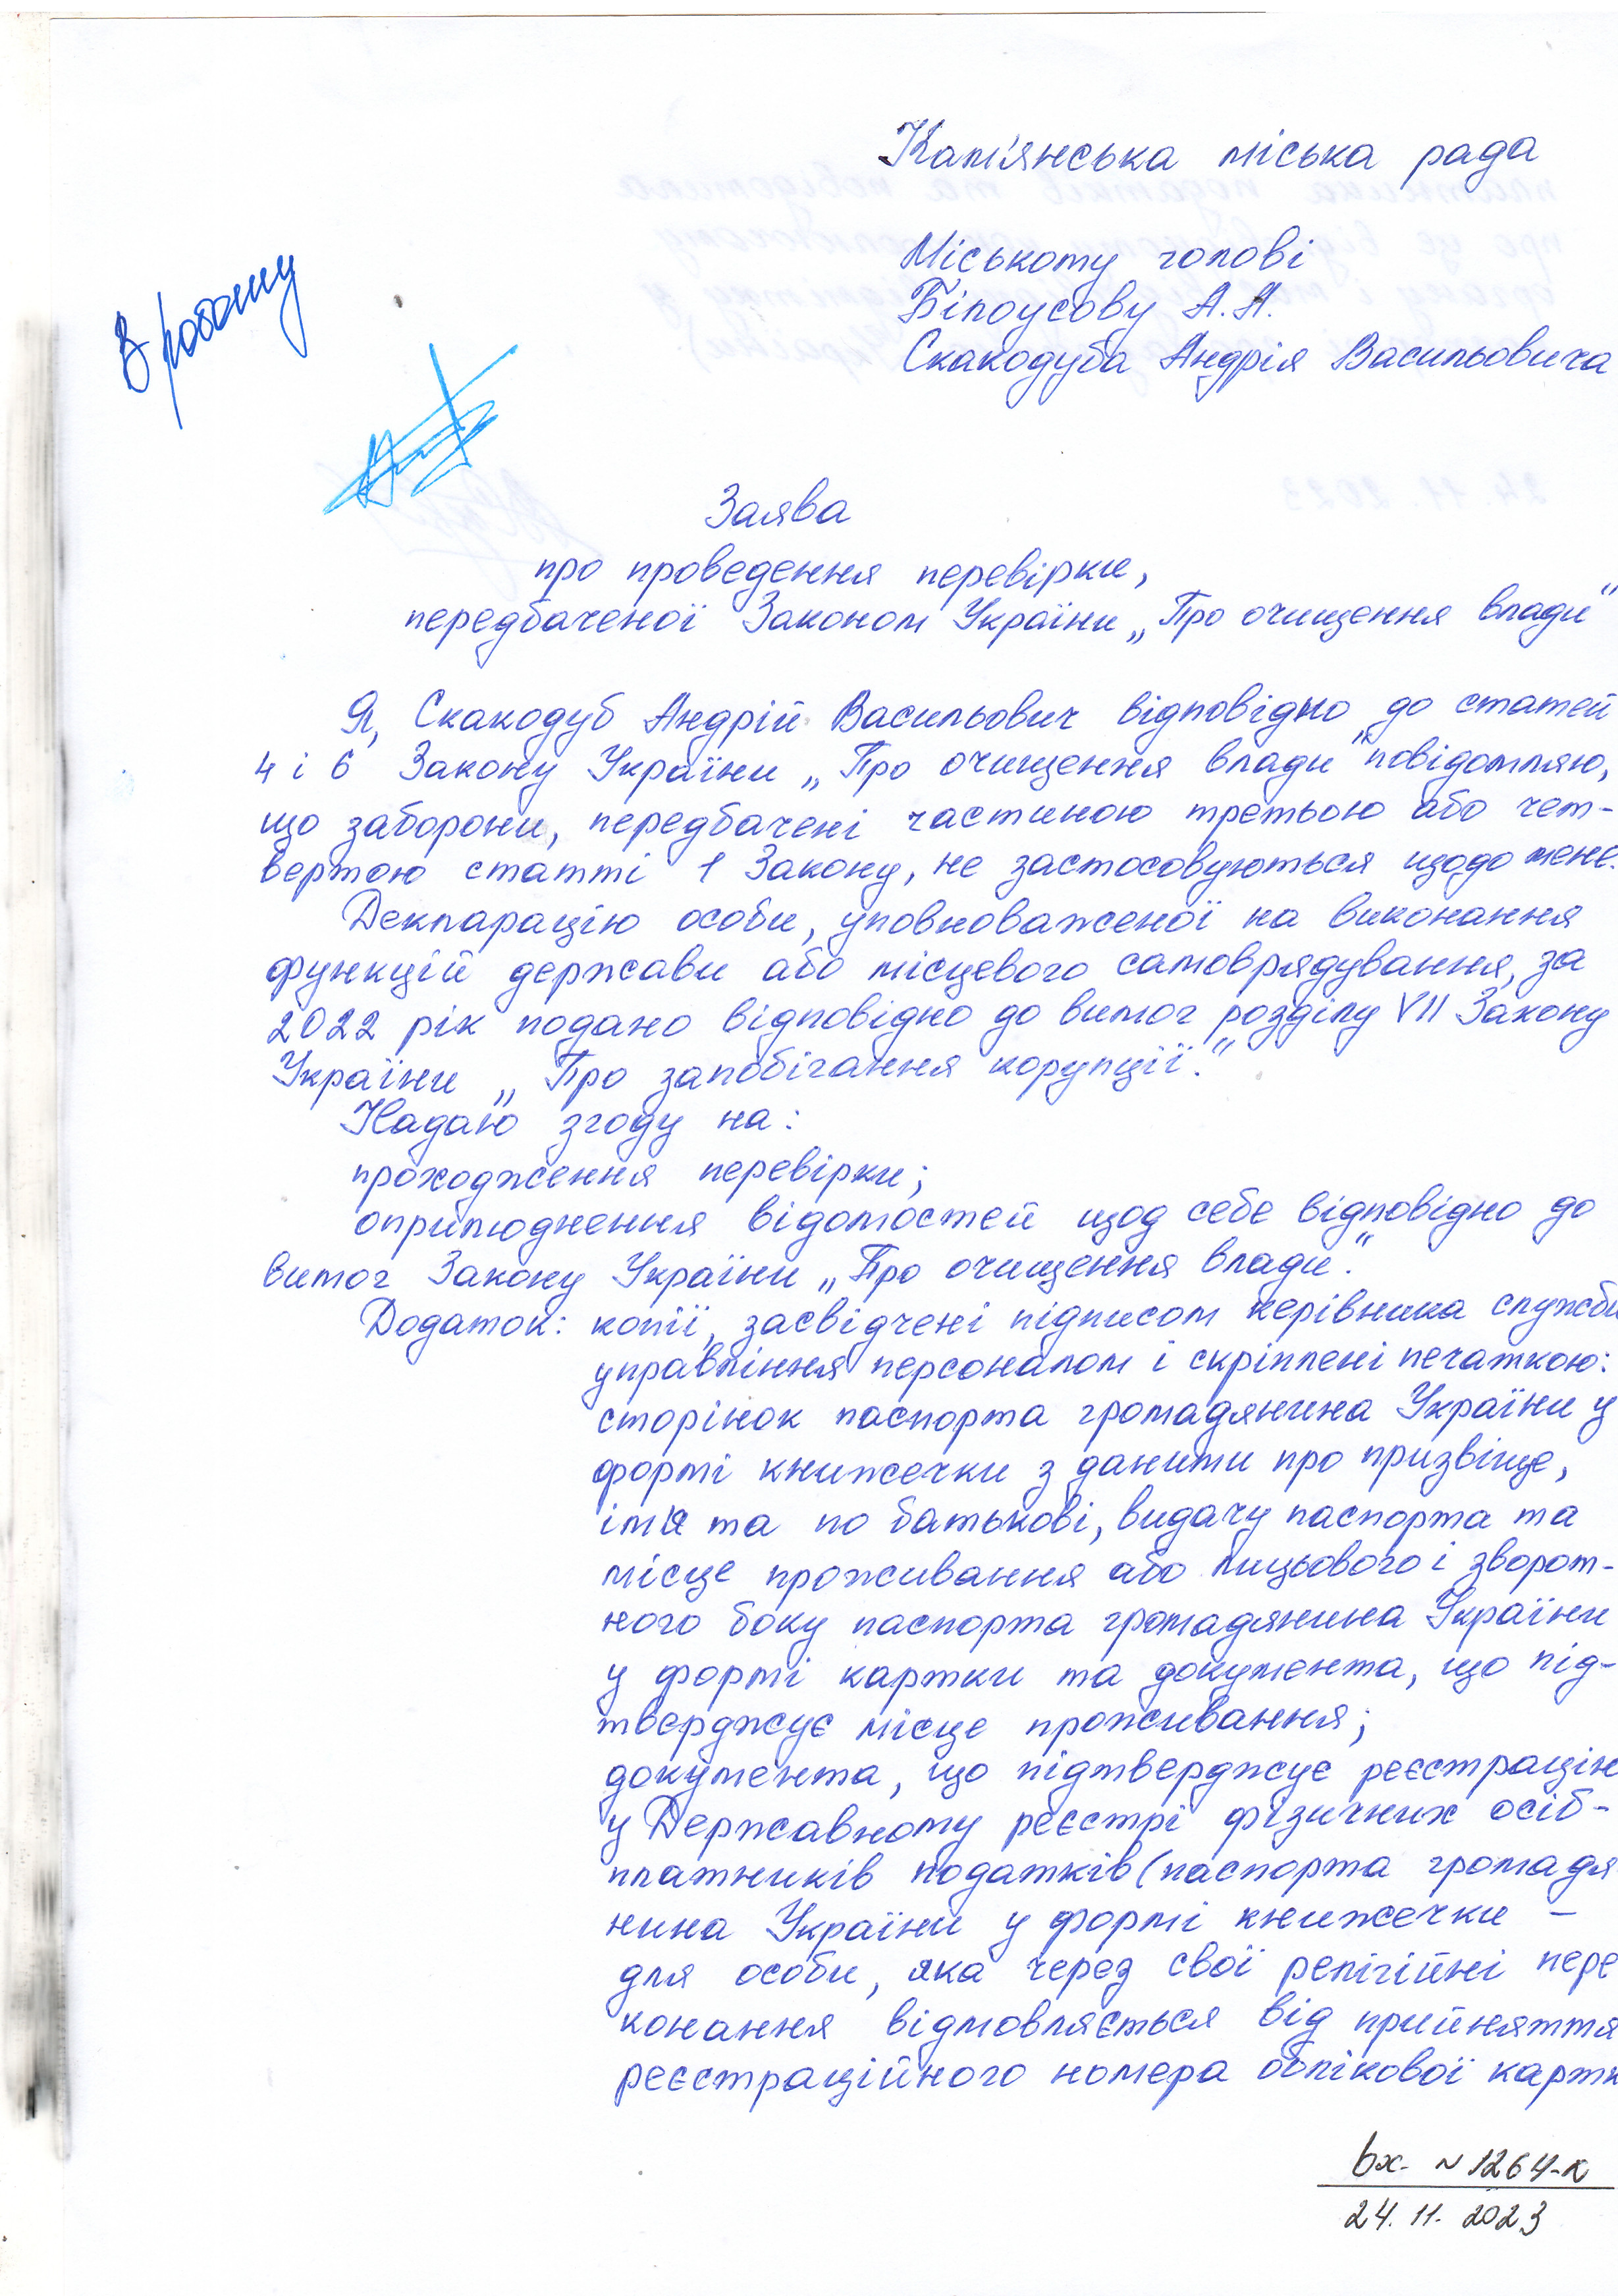 Кам'янська міська рада
Міському голові
Білоусову А.А.
Скакодуба Андрія Васильовича
В роботу
Заява
про проведення перевірки,
передбаченої Законом України „Про очищення влади"
Я, Скакодуб Андрій Васильович відповідно до статей
4 і 6 Закону України „Про очищення влади" повідомляю,
що заборони, передбачені частиною третьою або чет-
вертою статті 1 Закону, не застосовуються щодо мене.
Декларацію особи, уповноваженої на виконання
функцій держави або місцевого самоврядування, за
2022 рік подано відповідно до вимог розділу VII Закону
України „Про запобігання корупції."
Надаю згоду на:
проходження перевірки;
оприлюднення відомостей щод себе відповідно до
вимог Закону України „Про очищення влади."
Додаток: копії, засвідчені підписом керівника служби
управління персоналом і скріплені печаткою:
сторінок паспорта громадянина України у
формі книжечки з даними про призвіще,
ім'я та по батькові, видачу паспорта та
місце проживання або лицьового і зворот-
ного боку паспорта громадянина України
у формі картки та документа, що під-
тверджує місце проживання;
документа, що підтверджує реєстрацію
у Державному реєстрі фізичних осіб-
платників податків (паспорта громадя
нина України у формі книжечки –
для особи, яка через свої релігійні пере
конання відмовляється від прийняття
реєстраційного номера облікової картк
Вх. № 1264-к
24.11.2023